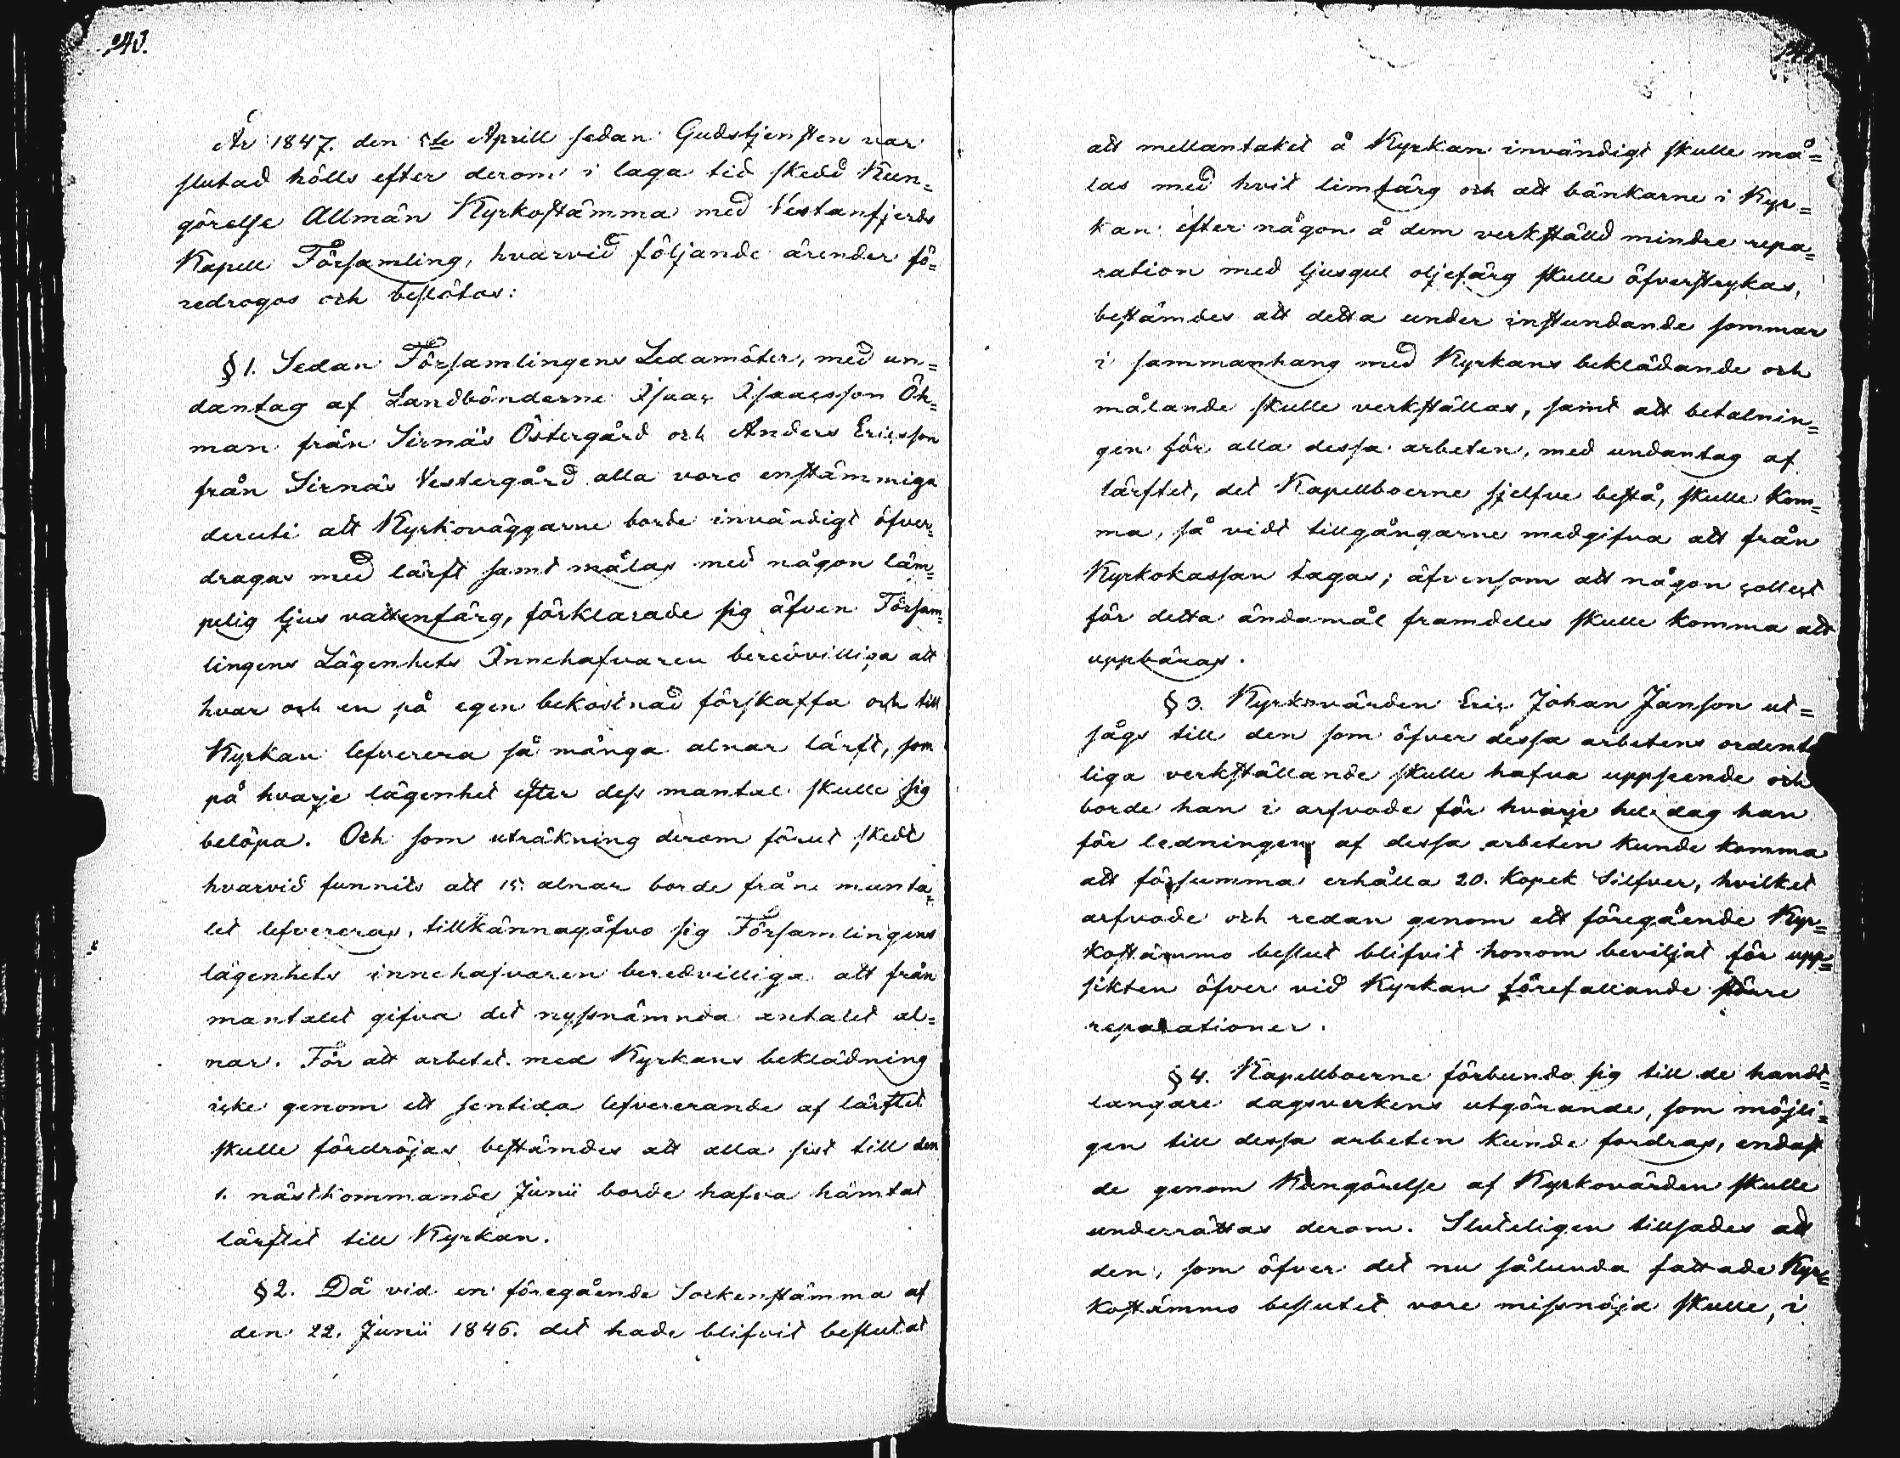 År 1847. den 5te Aprill sedan Gudstjensten var
slutad hölls efter derom i laga tid skedd Kun=
görelse Allmän Kyrkostämma med Vestanfjerds
Kapell Församling, hvarvid följande ärender fö=
redrogos och beslötos:
§ 1. Sedan Församlingens Ledamöter, med un=
dantag af Landbönderne Isaac Isaacsson Öh=
man från Sirnäs Östergård och Anders Ericsson
från Sirnäs Vestergård alla voro enstämmiga
deruti att Kyrkoväggarne borde invändigt öfver=
dragas med lärft samt målas med någon läm=
pelig ljus vattenfärg, förklarade sig äfven Försam=
lingens Lägenhets Innehafvaren beredvilliga att
hvar och en på egen bekostnad förskaffa och till
Kyrkan lefverera så många alnar lärft, som
på hvarje lägenhet efter dess mantal skulle sig
belöpa. Och som uträkning derom förut skedt
hvarvid funnits att 15. alnar borde från manta=
let lefvereras, tillkännagåfvo sig Församlingens
lägenhets innehafvaren beredvilliga att från
mantalet gifva det nyssnämnda antalet al=
nar. För att arbetet med Kyrkans beklädning
icke genom ett sentida lefvererande af lärftet
skulle fördröjas bestämdes att alla sist till den
1. nästkommande Junii borde hafva hämtat
lärftet till Kyrkan.
§ 2. Då vid en föregående Sockenstämma af
den 22. Junii 1846. det hade blifvit beslutat
att mellantaket å Kyrkan invändigt skulle må=
las med hvit limfärg och att bänkarne i Kyr=
kan efter någon å dem verkställd mindre repa=
ration med ljusgul oljefärg skulle öfverstrykas,
bestämdes att detta under instundande sommar
i sammanhang med Kyrkans beklädande och
målande skulle verkställas, samt att betalnin=
gen för alla dessa arbeten, med undantag af
lärftet, det Kapellboerne sjelfve bestå, skulle kom=
ma, så vidt tillgångarne medgifva att från
Kyrkokassan tagas; äfvensom att någon collect
för detta ändamål framdeles skulle komma att
uppbäras.
§ 3. Kyrkovärden Eric Johan Janson ut=
sågs till den som öfver dessa arbetens ordent=
liga verkställande skulle hafva uppseende och
borde han i arfvode för hvarje hel dag han
för ledningen af dessa arbeten kunde komma
att försumma erhålla 20. Kopek Silfver, hvilket
arfvode och redan genom ett föregående Kyr=
kostämmo beslut blifvit honom beviljat för upp=
sikten öfver vid Kyrkan förefallande större
reparationer.
§ 4. Kapellboerne förbundo sig till de handt=
langare dagsverkens utgörande, som möjli=
gen till dessa arbeten kunde fordras, endast
de genom Kungörelse af Kyrkovärden skulle
underrättas derom. Sluteligen tillsades att
den, som öfver det nu sålunda fattade Kyr=
kostämmo beslutet vore missnöjd skulle, i